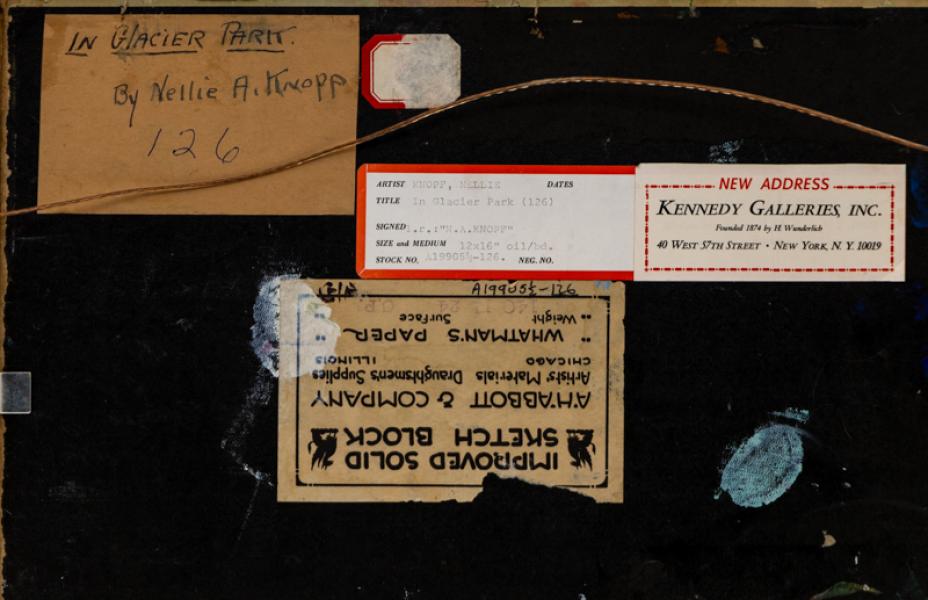 IN GLACIER PARK.
By Nellie A. KNOPP
126
ARTIST KNOPF, NELLIE DATES
TITLE In Glacier Park (126)
SIGNED l.r.:"N.A.KNOPF"
SIZE and MEDIUM 12x16" oil/bd.
STOCK NO. A19905½-126. NEG. NO.
NEW ADDRESS
KENNEDY GALLERIES, INC.
Founded 1874 by H. Wunderlich
40 WEST 57TH STREET • NEW YORK, N. Y. 10019
IMPROVED SOLID
SKETCH BLOCK
A.H. ABBOTT & COMPANY
Artists' Materials Draughtsmen's Supplies
CHICAGO ILLINOIS
" WHATMAN'S PAPER
" Weight Surface
A19905½-126